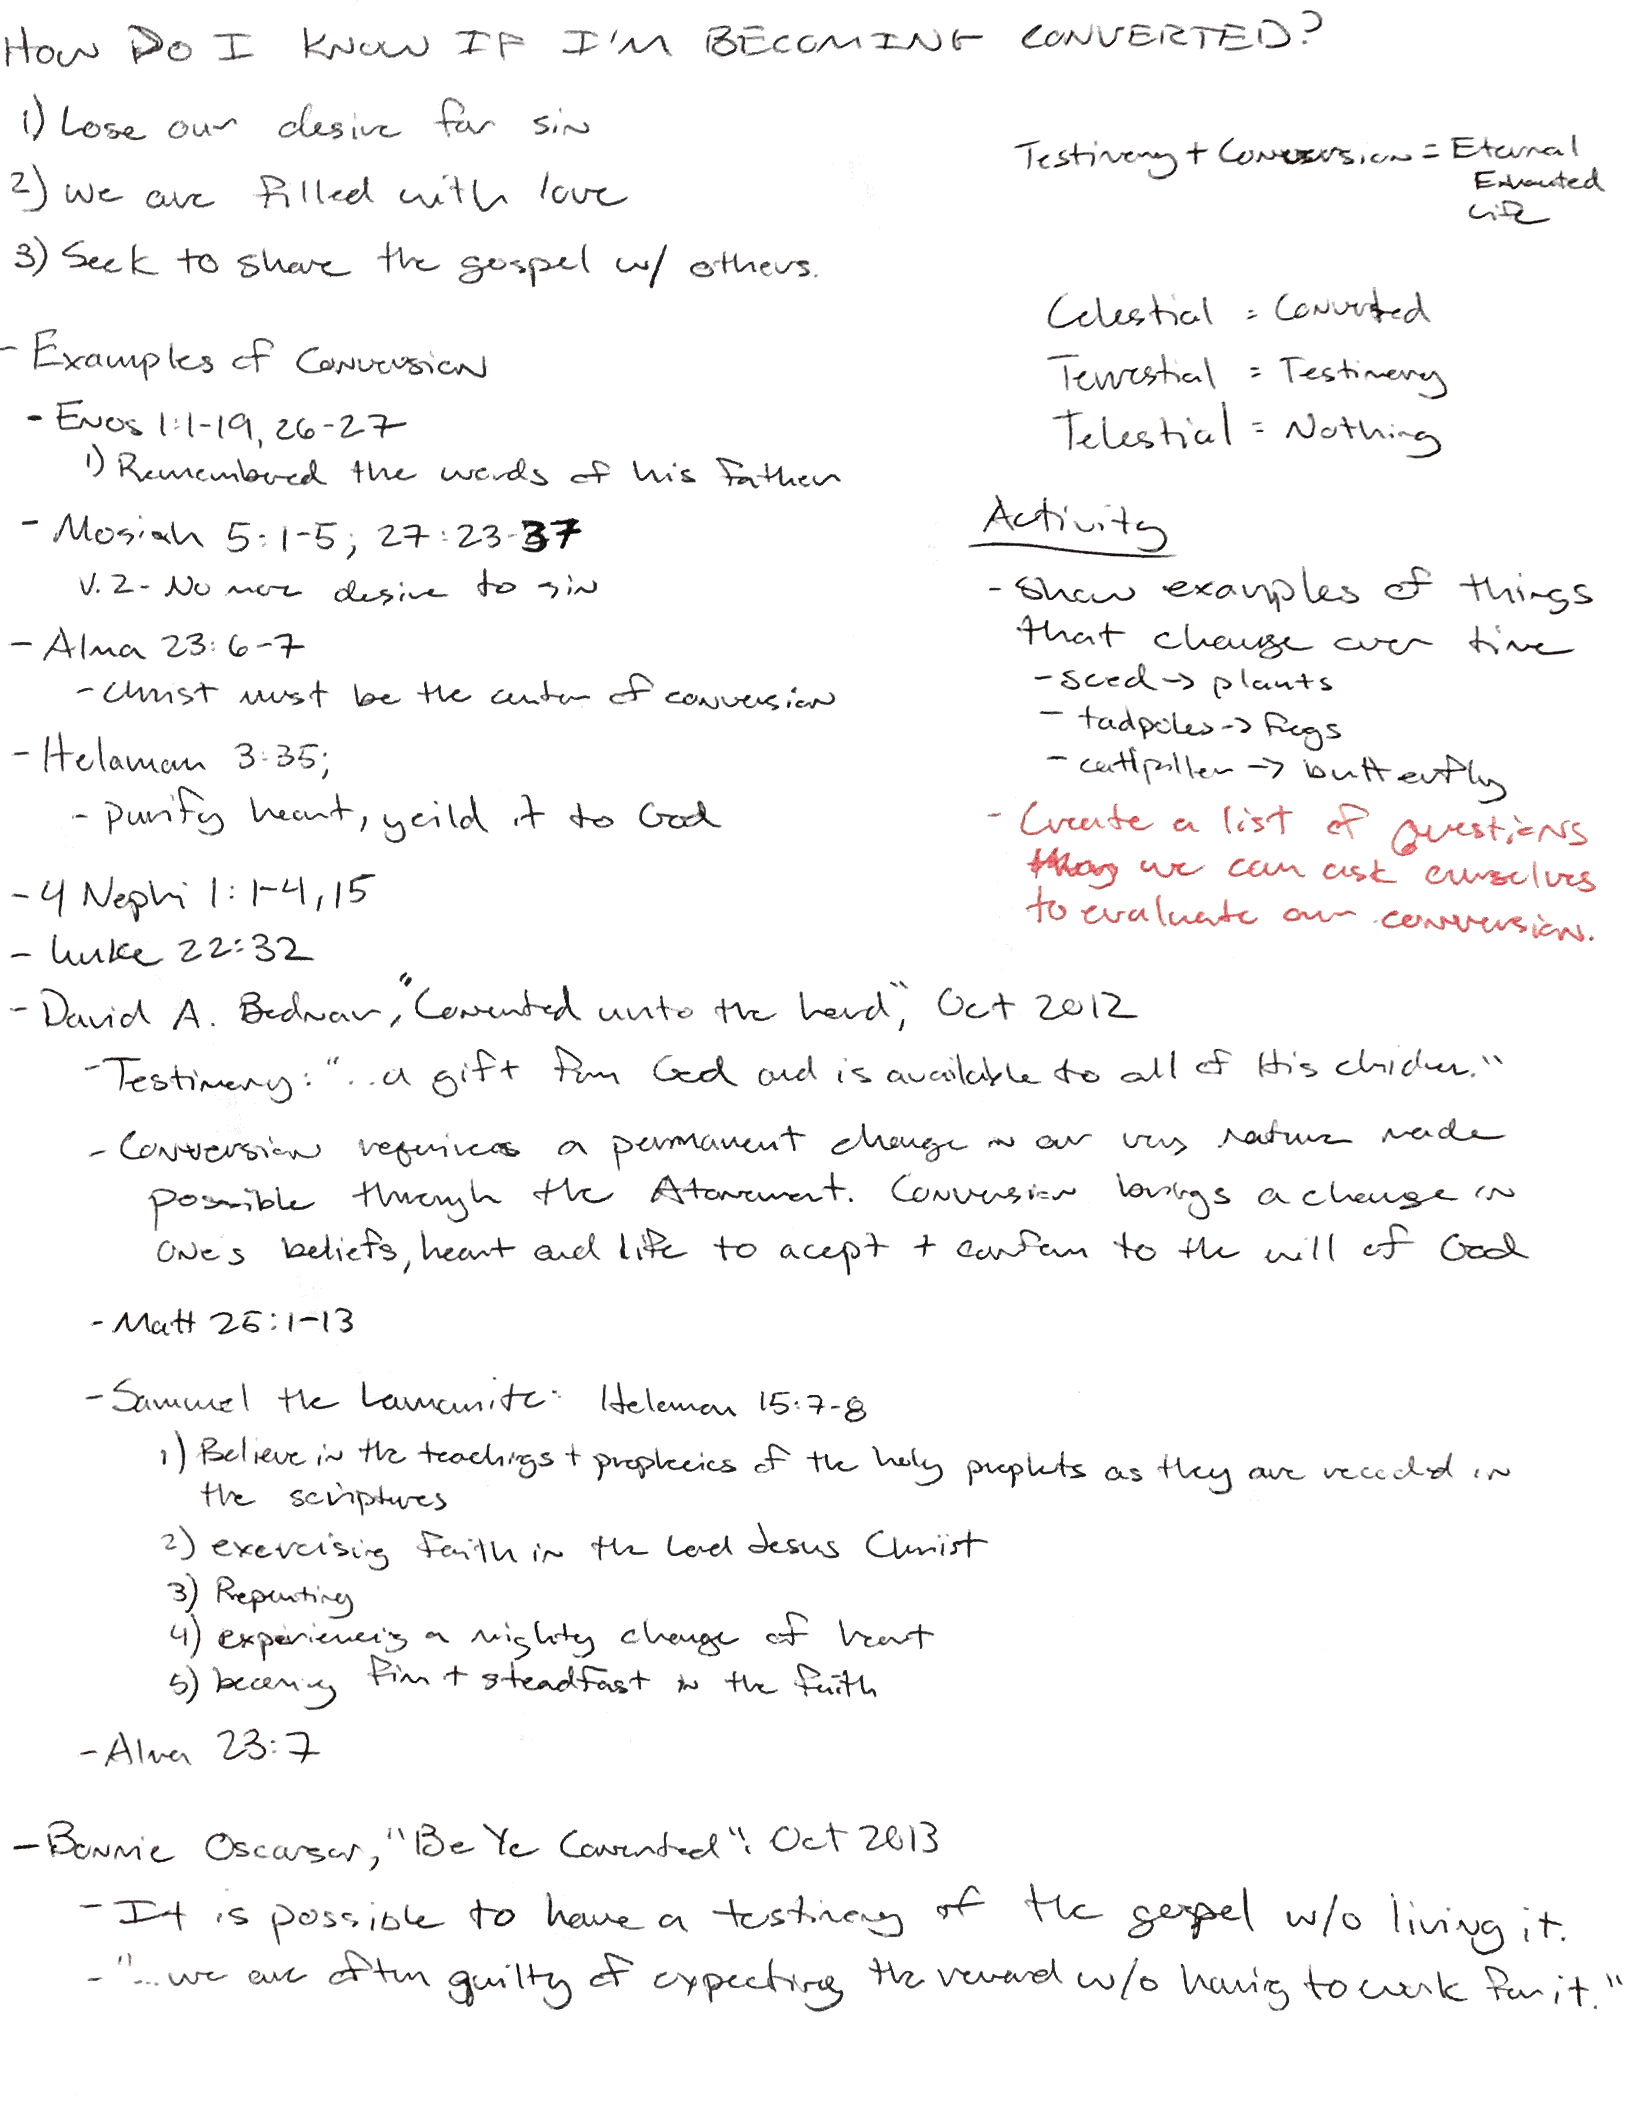 HOW DO I KNOW IF I'M BECOMING CONVERTED?
1) Lose our desire for sin
2) We are filled with love
3) Seek to share the gospel w/ others.
- Examples of Conversion
- Enos 1:1-19, 26-27
1) Remembered the words of his Father
- Mosiah 5:1-5; 27:23-37
V. 2 - No more desire to sin
- Alma 23:6-7
- Christ must be the center of conversion
- Helaman 3:35;
- purify heart, yeild it to God
- 4 Nephi 1:1-4, 15
- Luke 22:32
Testimony + Conversion = Eternal
Exhalted
Life
Celestial = Converted
Terrestial = Testimony
Telestial = Nothing
Activity
- Show examples of things
that change over time
- seed -> plants
- tadpoles -> frogs
- catipiller -> butterfly
- Create a list of questions
we can ask ourselves
to evaluate our conversion.
- David A. Bednar, "Converted unto the Lord", Oct 2012
- Testimony: "...a gift from God and is available to all of His children."
- Conversion requires a permanent change in our very nature made
possible through the Atonement. Conversion brings a change in
one's beliefs, heart and life to acept + conform to the will of God
- Matt 25:1-13
- Sammuel the Lamanite: Helaman 15:7-8
1) Believe in the teachings + prophecies of the holy prophets as they are recorded in
the scriptures
2) exercising faith in the Lord Jesus Christ
3) Repenting
4) experiencing a mighty change of heart
5) becoming firm + steadfast in the faith
- Alma 23:7
- Bonnie Oscarson, "Be Ye Converted": Oct 2013
- It is possible to have a testimony of the gospel w/o living it.
- "...we are often guilty of expecting the reward w/o having to work for it."